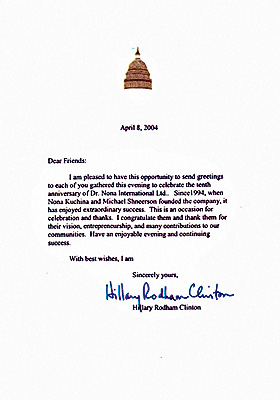 April 8, 2004
Dear Friends:
I am pleased to have this opportunity to send greetings
to each of you gathered this evening to celebrate the tenth
anniversary of Dr. Nona International Ltd.. Since1994, when
Nona Kuchina and Michael Shneerson founded the company, it
has enjoyed extraordinary success. This is an occasion for
celebration and thanks. I congratulate them and thank them for
their vision, entrepreneurship, and many contributions to our
communities. Have an enjoyable evening and continuing
success.
With best wishes, I am
Sincerely yours,
Hillary Rodham Clinton
Hillary Rodham Clinton